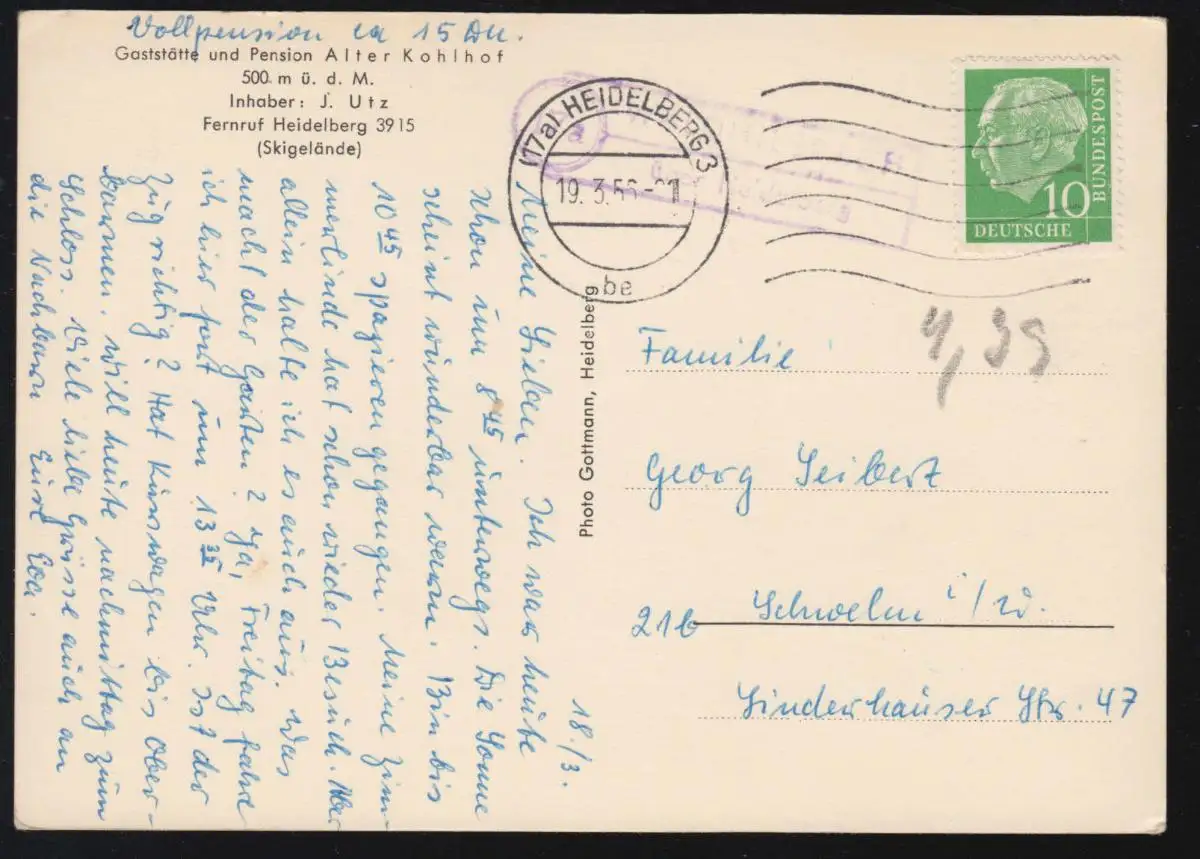 Vollpension ca 15 DM.
Gaststätte und Pension Alter Kohlhof
500 m ü. d. M.
Inhaber: J. Utz
Fernruf Heidelberg 3915
(Skigelände)
18./3.
Meine Lieben. Ich war heute
schon um 8 45 unterwegs. Die Sonne
scheint wunderbar warm. Bin bis
10 45 spazieren gegangen. Meine Zim-
merlinde hat schon wieder Besuch. Aber
allein halte ich es auch aus. Was
macht der Garten? Ja, Freitag fahre
ich hier fort um 13 35 Uhr. Ist der
Zug richtig? Hat Kurswagen bis Ober-
barmen. Will heute nachmittag zum
Schloss. Viele liebe Grüsse auch an
die Nachbarn Eure Eva.
Photo Gottmann, Heidelberg
(17a) HEIDELBERG 3
19. 3. 56
be
a
10
DEUTSCHE
BUNDESPOST
4,39
Familie
Georg Seibert
21b Schwelm i/W.
Linderhauser Str. 47